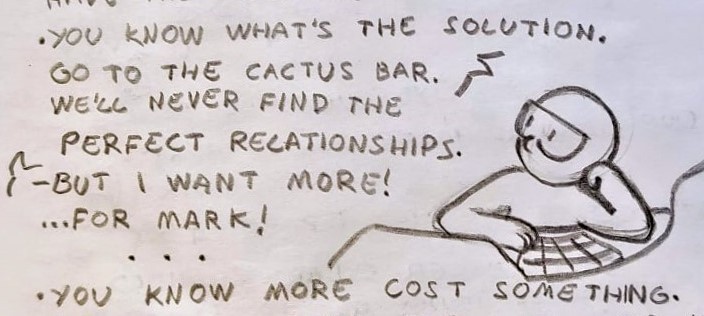 •YOU KNOW WHAT'S THE SOLUTION.
GO TO THE CACTUS BAR.
WE'LL NEVER FIND THE
PERFECT RELATIONSHIPS.
-BUT I WANT MORE!
...FOR MARK!
...
•YOU KNOW MORE COST SOMETHING.